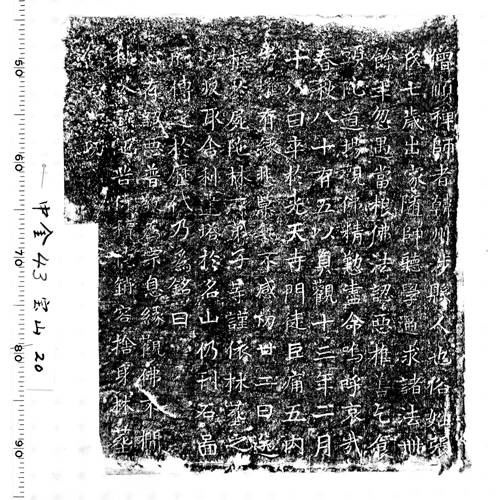 僧順禪師者韓州涉縣人也俗姓張
氏七歲出家隨師聽學遍求諸法卅
餘年忽遇當根佛法認惡推善乞食
頭陀道場觀佛精懃盡命嗚呼哀哉
春秋八十有五以貞觀十三年二月
十八日卒於光天寺門徒巨痛五內
有緣悲 不感切廿二日送
屍陀林 弟子等謹依林葬之
法收取舍利建塔於名山仍刊石啚
傳之於歷代乃為銘曰
心存認惡普 為宗息緣觀佛不
 宮捨身林葬

中金 43 宝山 20
50
60
70
80
90